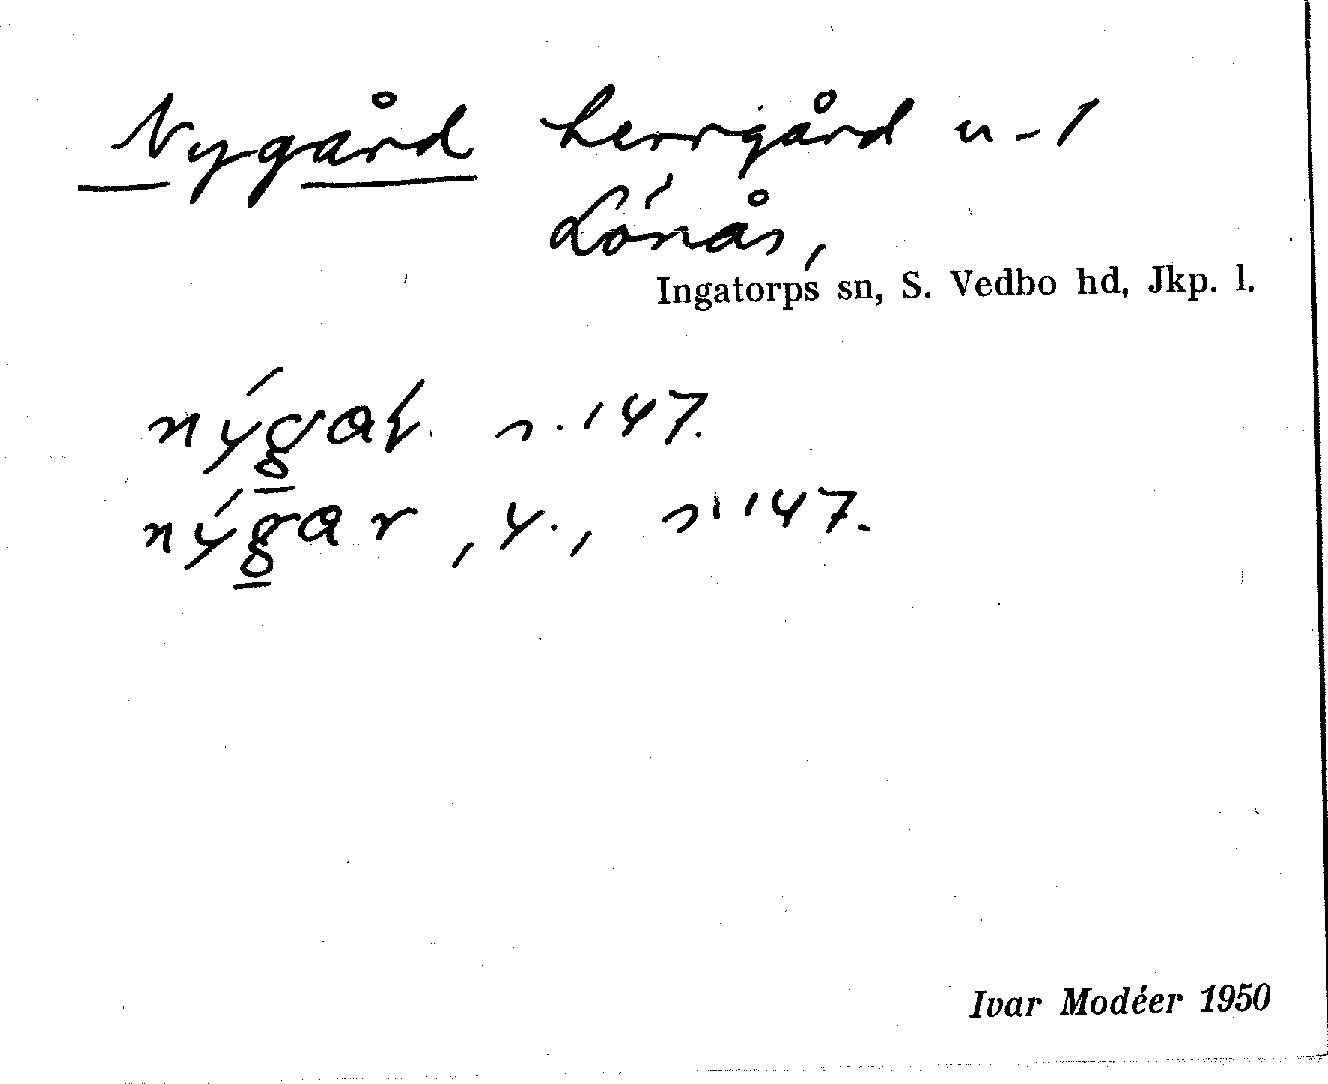 Nygård herrgård u-l
Lönås,
Ingatorps sn, S. Vedbo hd, Jkp. l.
nýgaɽ s. 147.
nýgar, y., s. 147.
Ivar Modéer 1950